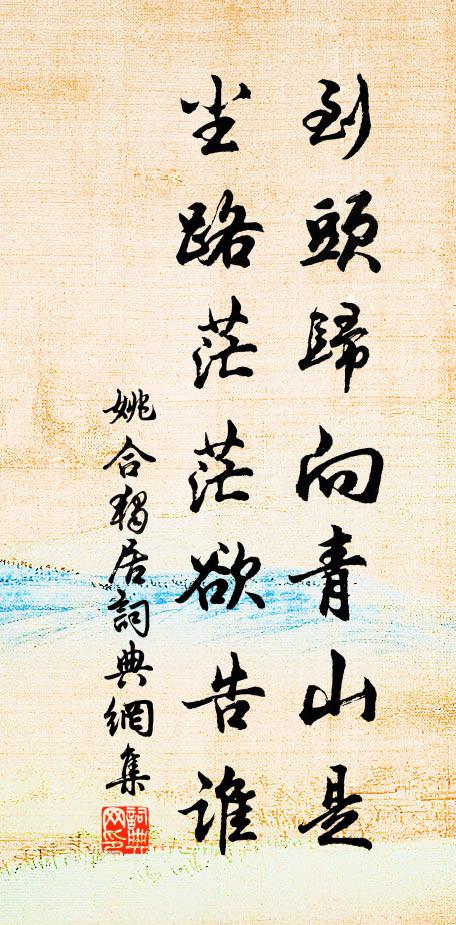 到頭歸向青山是
尘路茫茫欲告誰
姚合獨居詞典網集
詞典网印